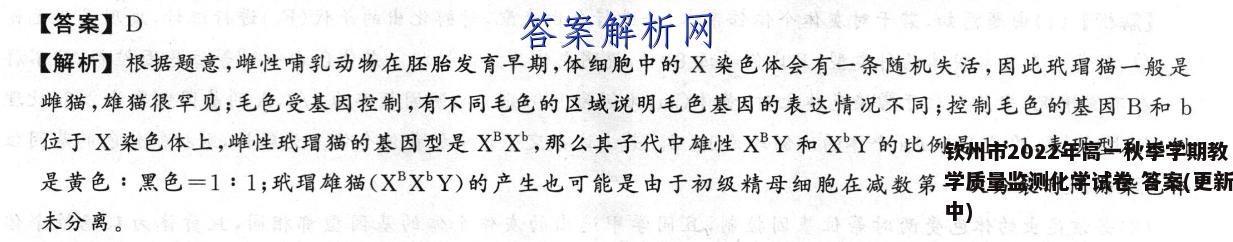 【答案】D
答案解析网
【解析】根据题意,雌性哺乳动物在胚胎发育早期,体细胞中的 X 染色体会有一条随机失活,因此玳瑁猫一般是
雌猫,雄猫很罕见;毛色受基因控制,有不同毛色的区域说明毛色基因的表达情况不同;控制毛色的基因 B 和 b
位于 X 染色体上,雌性玳瑁猫的基因型是 XᴮXᵇ,那么其子代中雄性 XᴮY 和 XᵇY 的比例是
是黄色∶黑色=1∶1;玳瑁雄猫(XᴮXᵇY)的产生也可能是由于初级精母细胞在减数第
未分离。
钦州市2022年高一秋季学期教
学质量监测化学试卷 答案(更新
中)